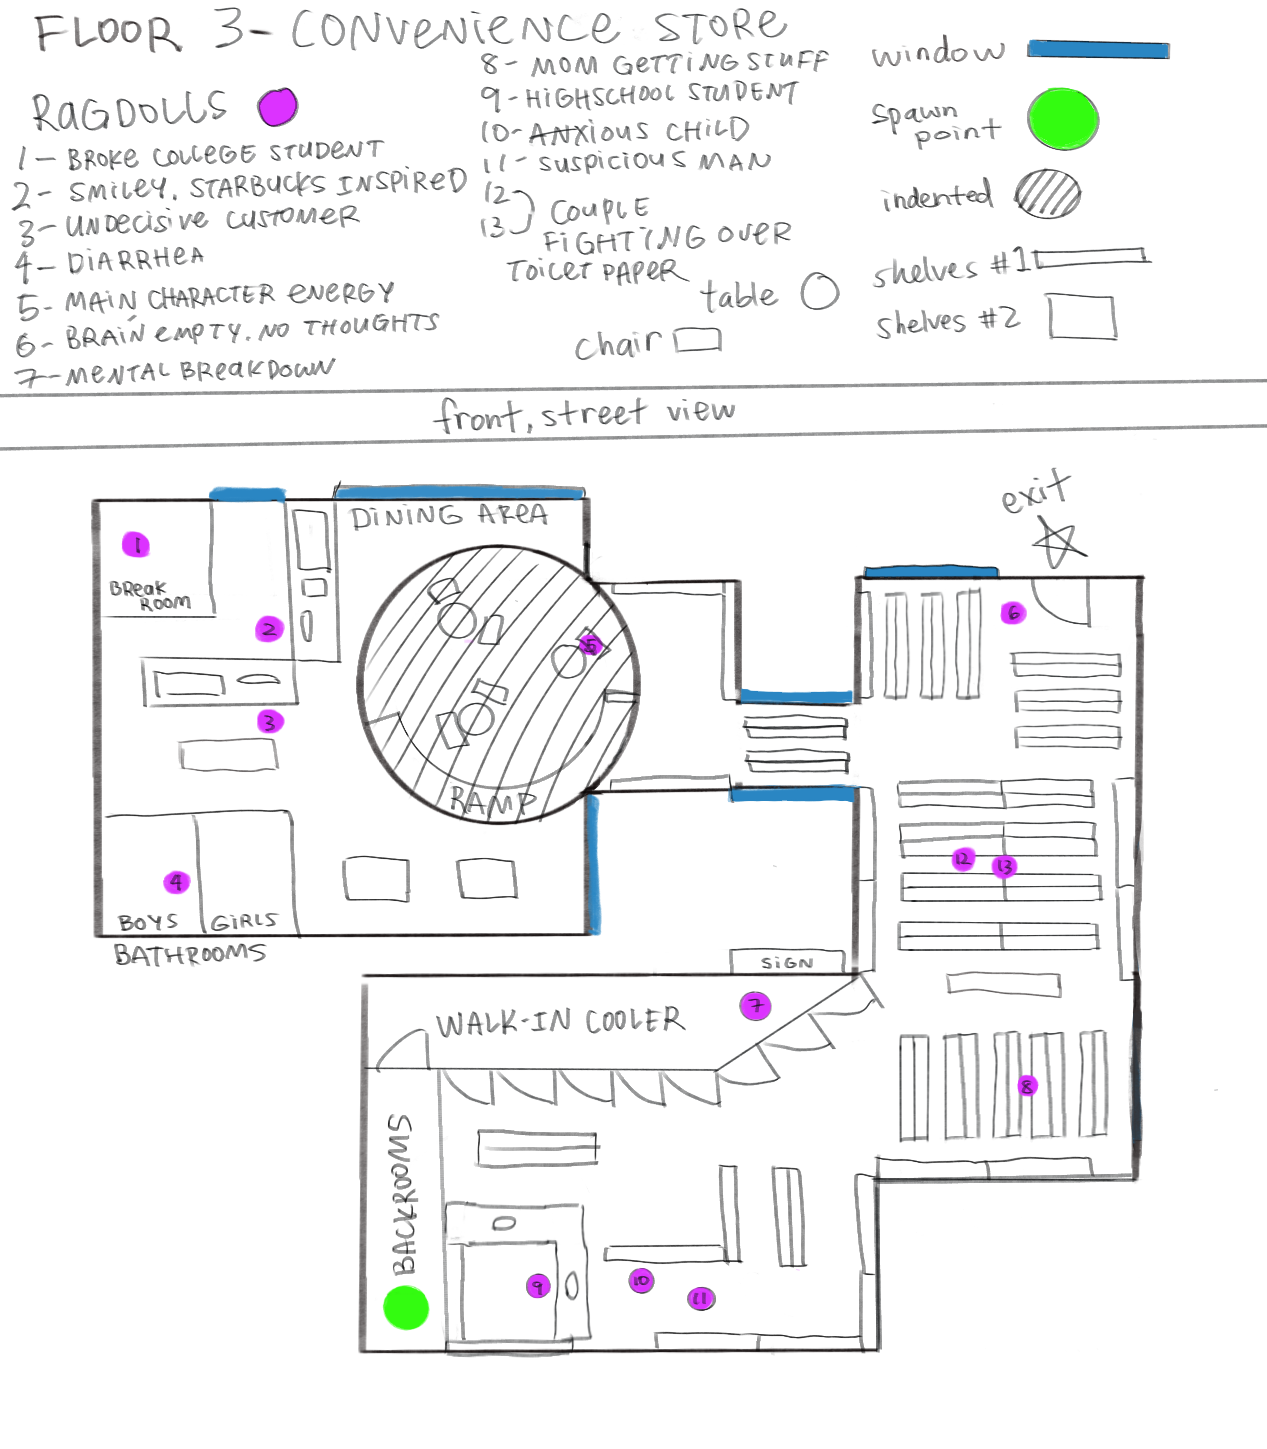 FLOOR 3- CONVENIENCE STORE
RAGDOLLS
1- BROKE COLLEGE STUDENT
2- SMILEY. STARBUCKS INSPIRED
3- UNDECISIVE CUSTOMER
4- DIARRHEA
5- MAIN CHARACTER ENERGY
6- BRAIN EMPTY. NO THOUGHTS
7- MENTAL BREAKDOWN
8- MOM GETTING STUFF
9- HIGHSCHOOL STUDENT
10- ANXIOUS CHILD
11- SUSPICIOUS MAN
12
13
COUPLE
FIGHTING OVER
TOILET PAPER
window
spawn
point
indented
shelves #1
shelves #2
table
chair
front, street view
exit
DINING AREA
1
BREAK
ROOM
2
3
5
6
RAMP
4
BOYS
GIRLS
BATHROOMS
12
13
SIGN
7
WALK-IN COOLER
8
BACKROOMS
9
10
11